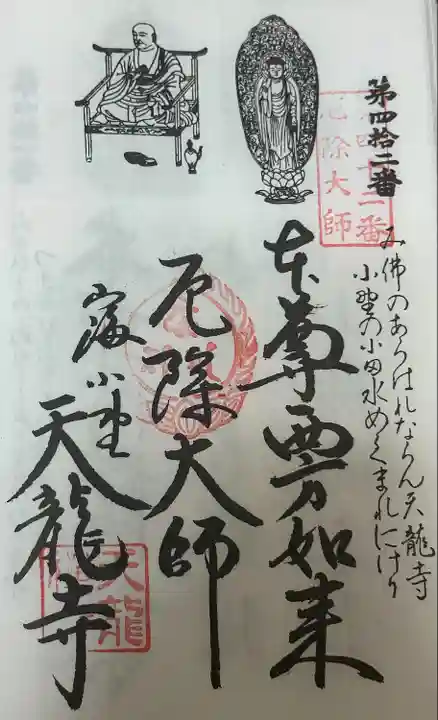 第四拾二番
み佛のあらはれならん天龍寺
小埜の小田水めくまれにけり
本尊西方如来
厄除大師
小埜
天龍寺
四十二番
厄除大師
天龍